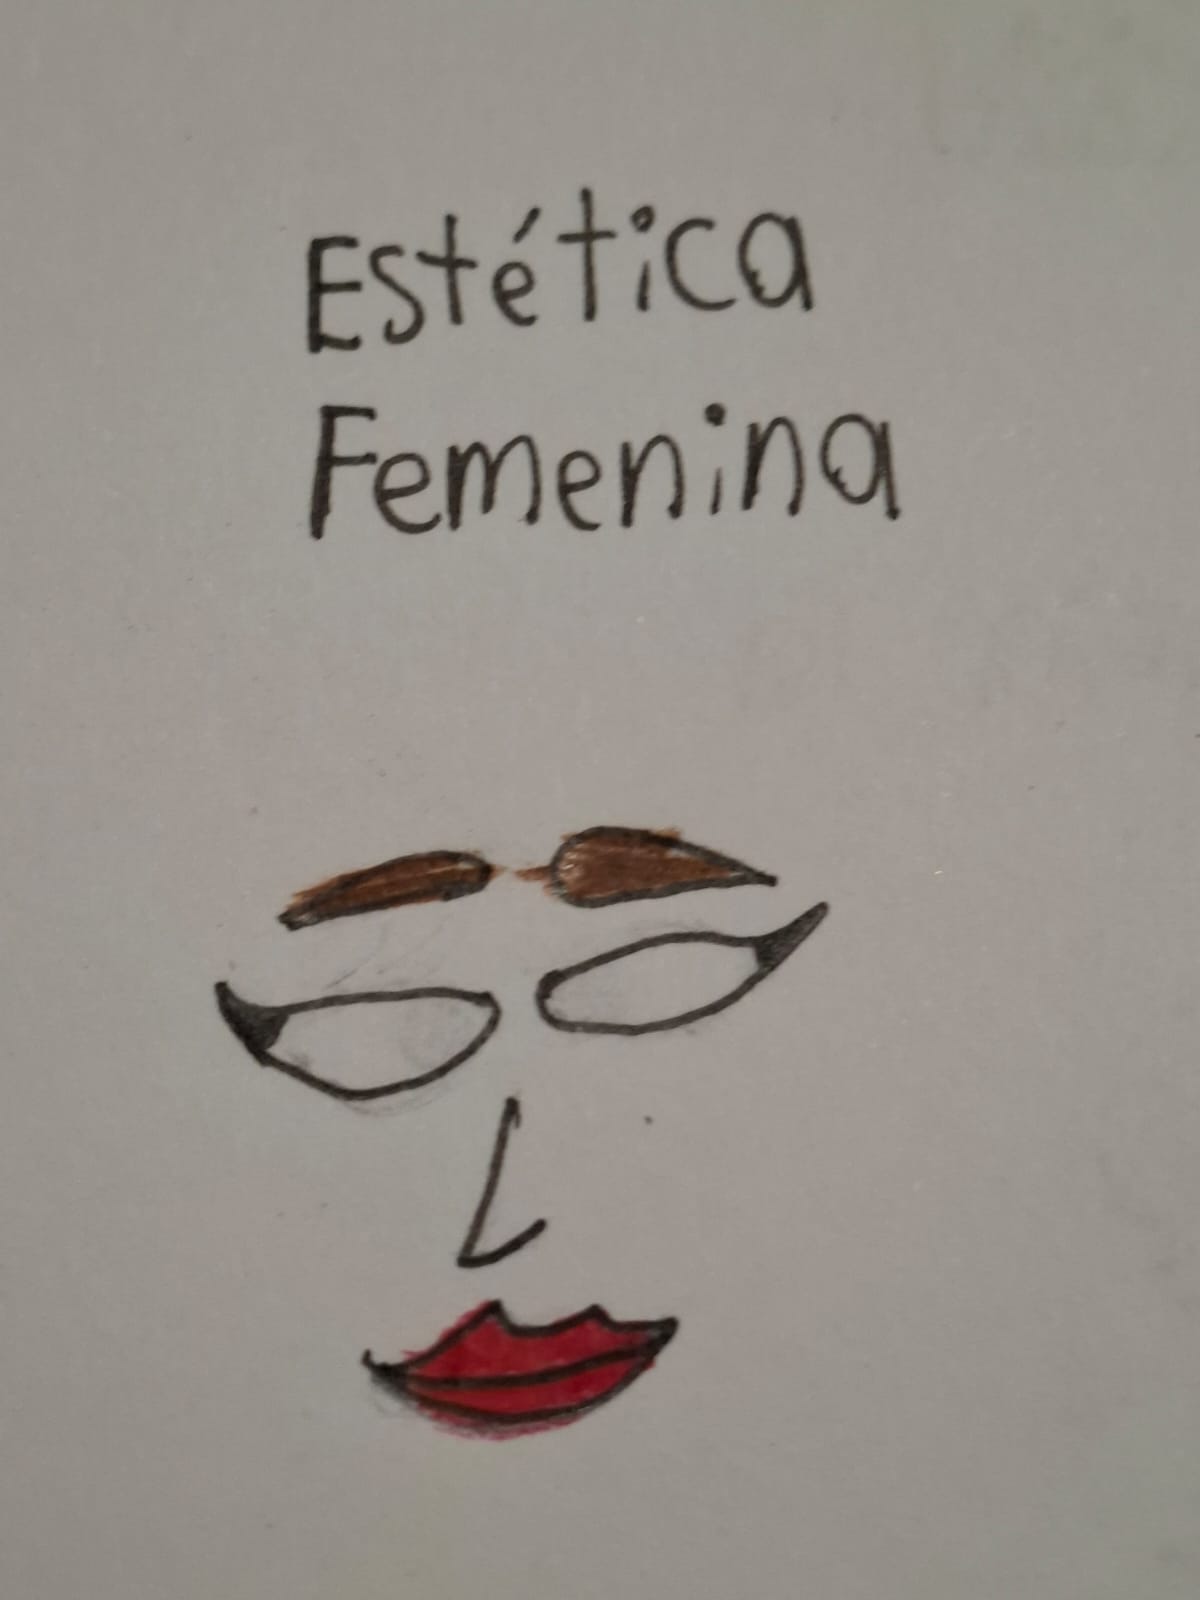 Estética
Femenina